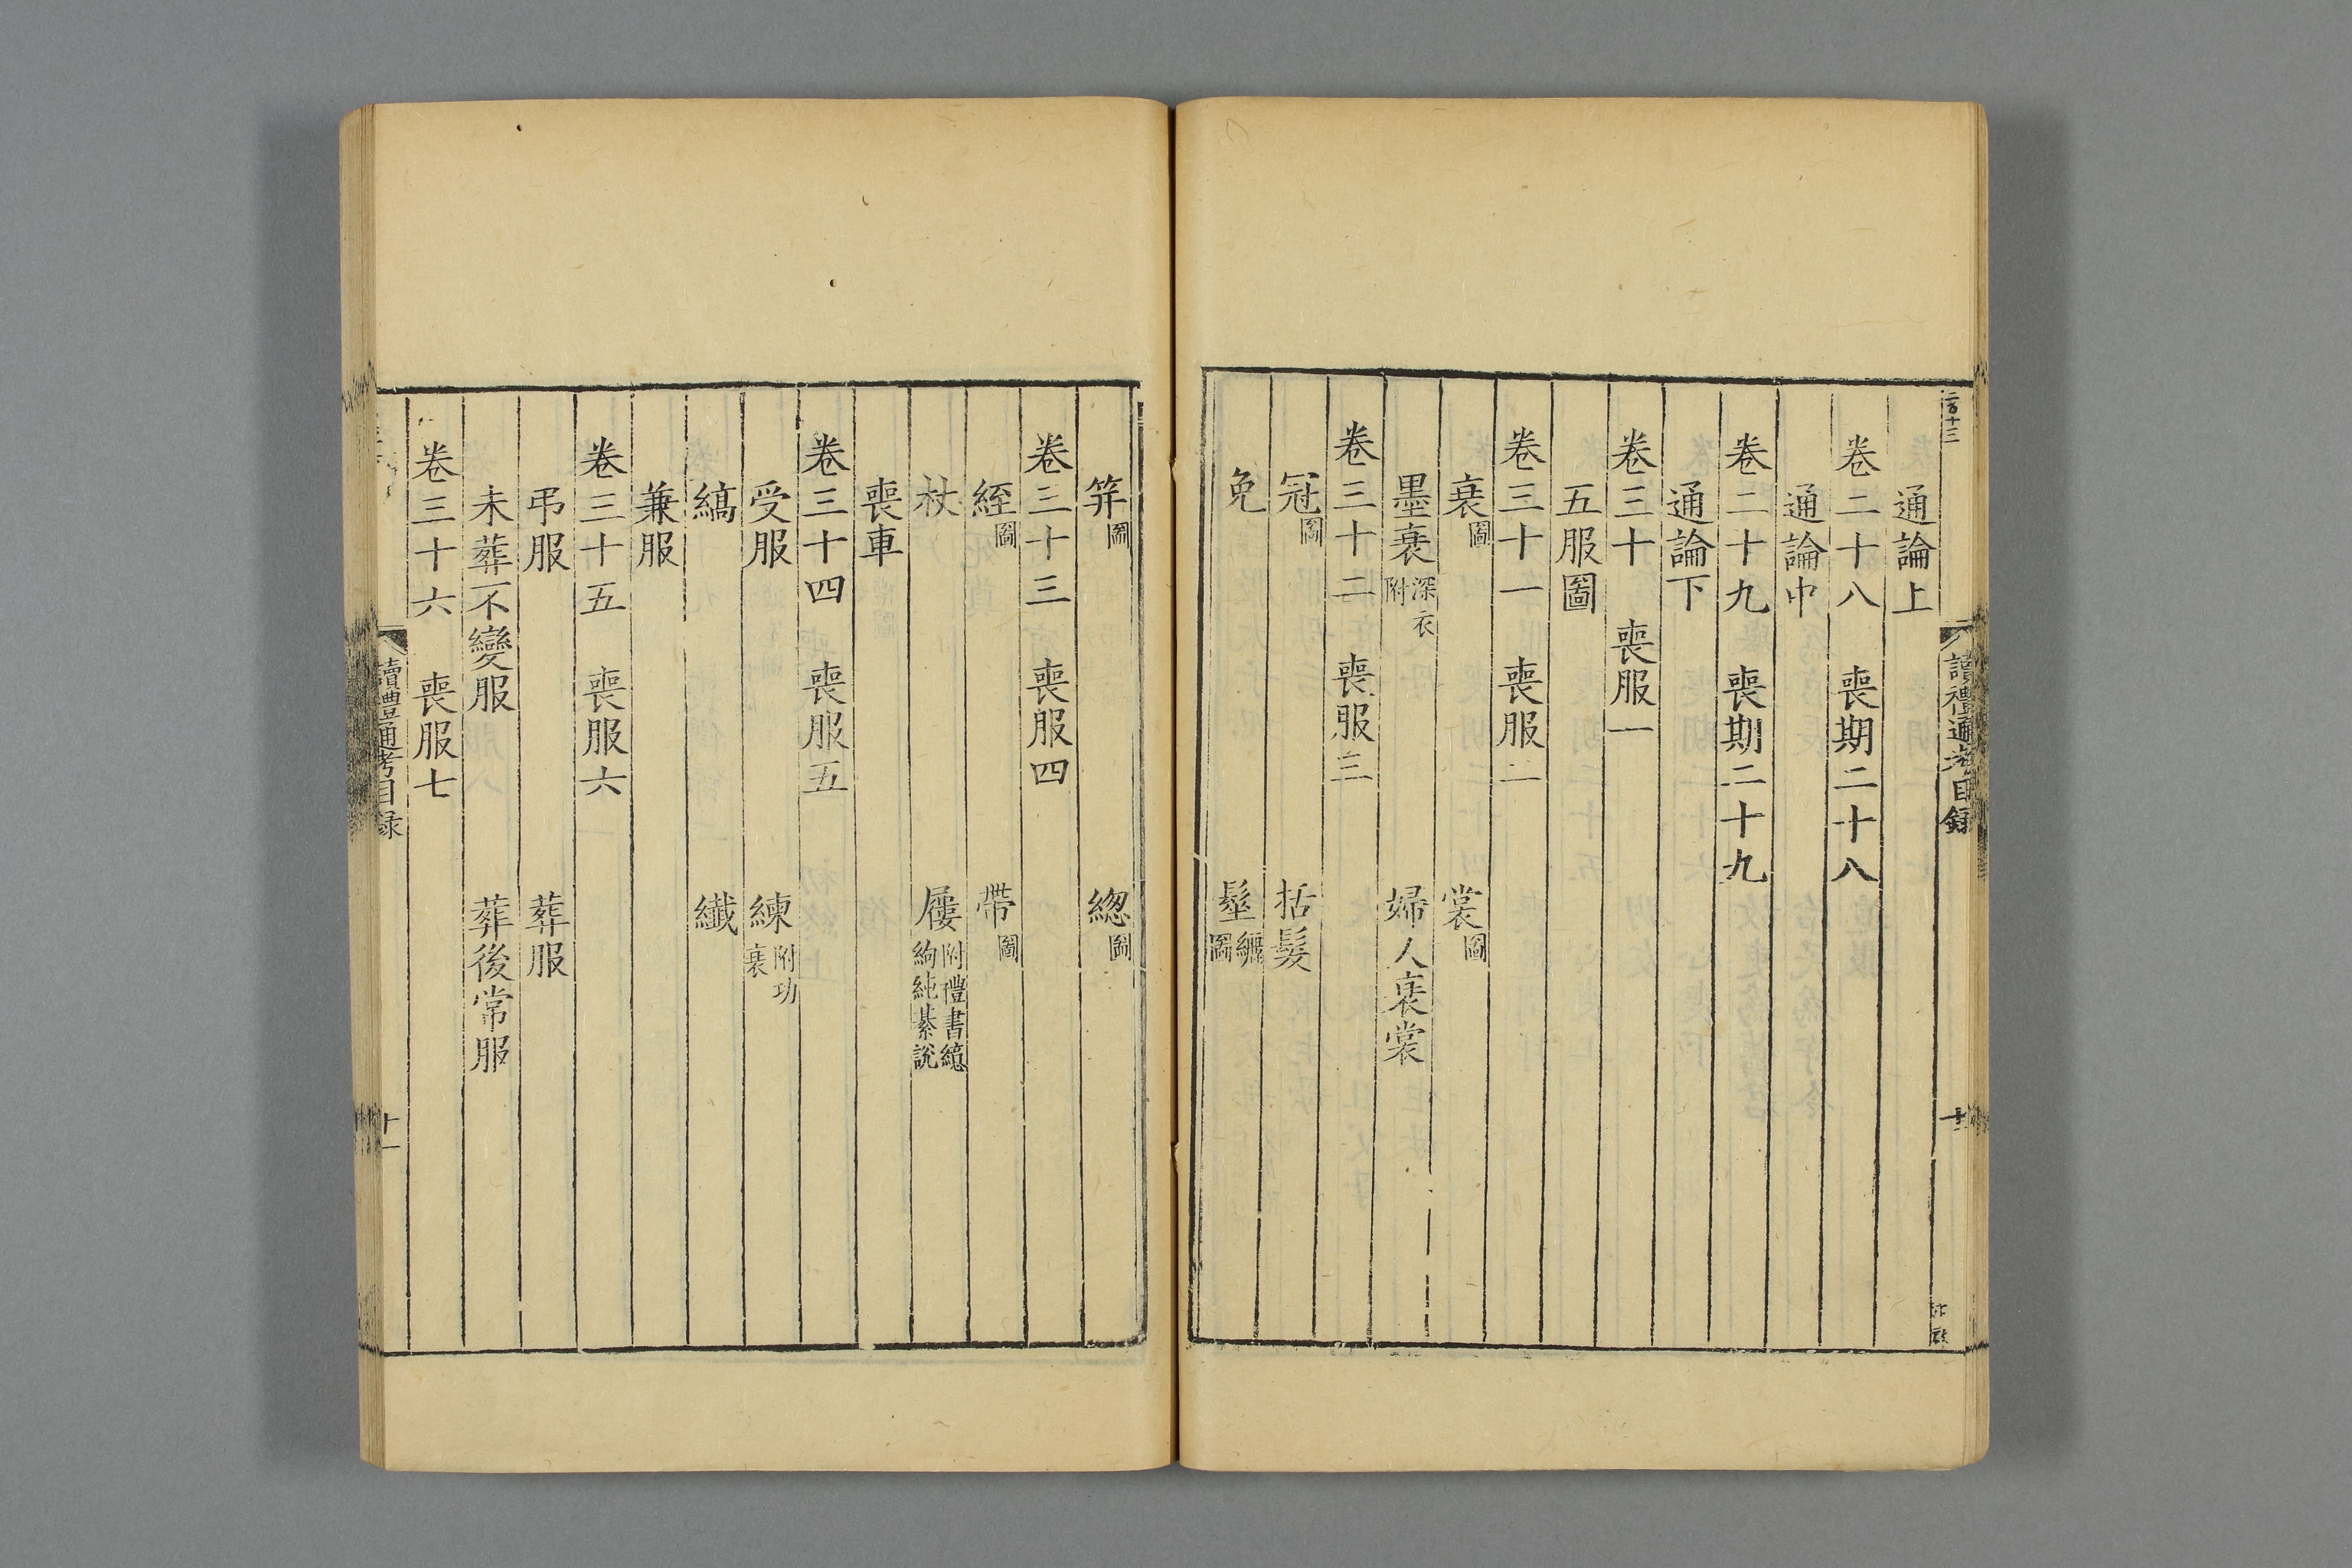 讀禮通考目錄
通論上
卷二十八　喪期二十八
通論中
卷二十九　喪期二十九
通論下
卷三十　喪服一
五服圖
卷三十一　喪服二
衰圖　裳圖
墨衰深衣附　婦人衰裳
卷三十二　喪服三
冠圖　括髮
免　髽纚圖
笄圖　總圖
卷三十三　喪服四
絰圖　帶圖
杖　屨附禮書繶絇純綦說
喪車
卷三十四　喪服五
受服　練附功衰
縞　纖
兼服
卷三十五　喪服六
弔服　葬服
未葬不變服　葬後常服
卷三十六　喪服七
讀禮通考目錄
十一